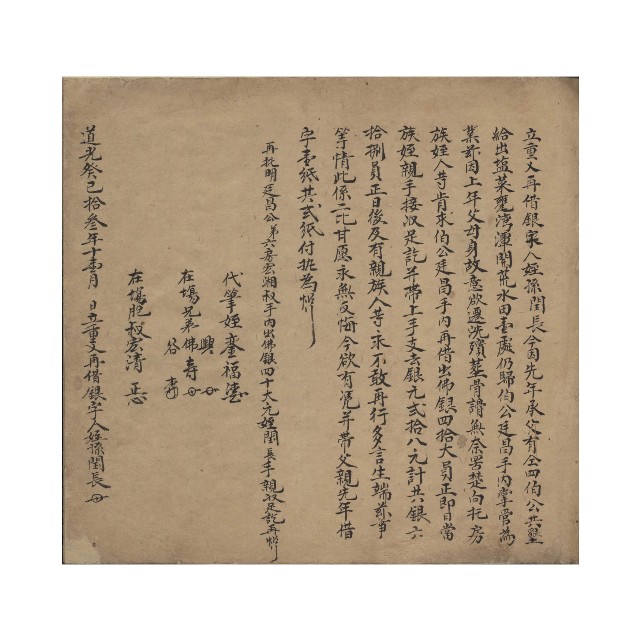 立重支再借銀字人姪孫閏長今因先年承父有仝四伯公共墾
給出塩菜甕湾渾開荒水田壹處仍歸伯公廷昌手內掌管為
業茲因上年父母身故意欲遷洗殯塟骨謂無奈苦楚向托房
族姪人等肯求伯公廷昌手內再借出佛銀四拾大員正即日當
族姪親手接収足訖并帶上手支去銀元弍拾八元計共銀六
拾捌員正日後及有親族人等永不敢再行多言生端茲事
等情此係二比甘愿永無反悔今欲有凴并帶父親先年借
字壹紙共弍紙付执為炤
再批明廷昌公第六房宏湘叔手內出佛銀四十大元姪閏長手親収足訖再炤
代筆姪 福
興
在塲兄弟佛壽
谷
在塲胞叔宏清
道光癸已拾叁年十壹月 日立重支再借銀字人姪孫閏長